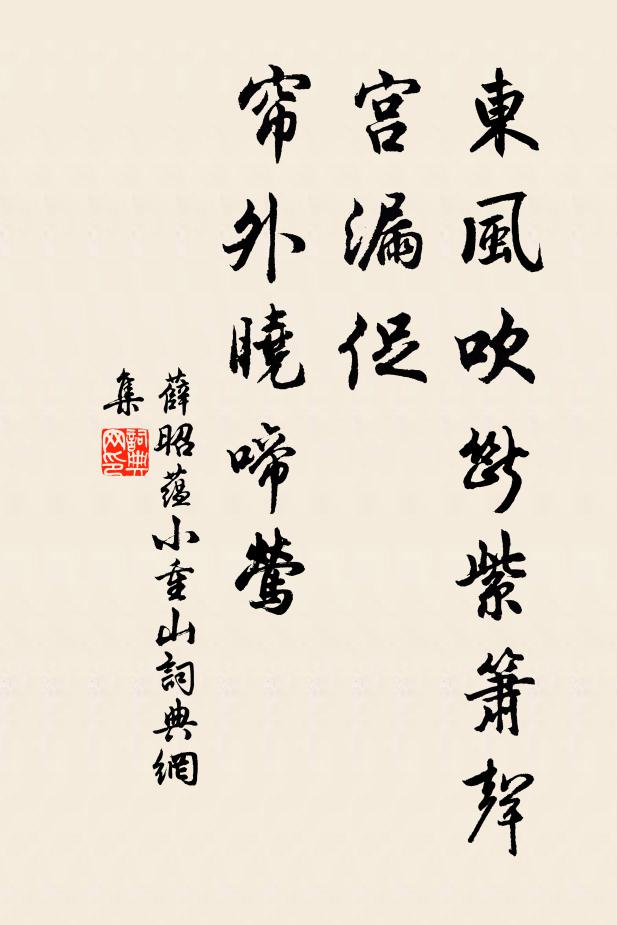 東風吹斷紫簫聲
宮漏促
帘外曉啼鶯
薛昭蕴小重山詞典網
集
詞典
网印